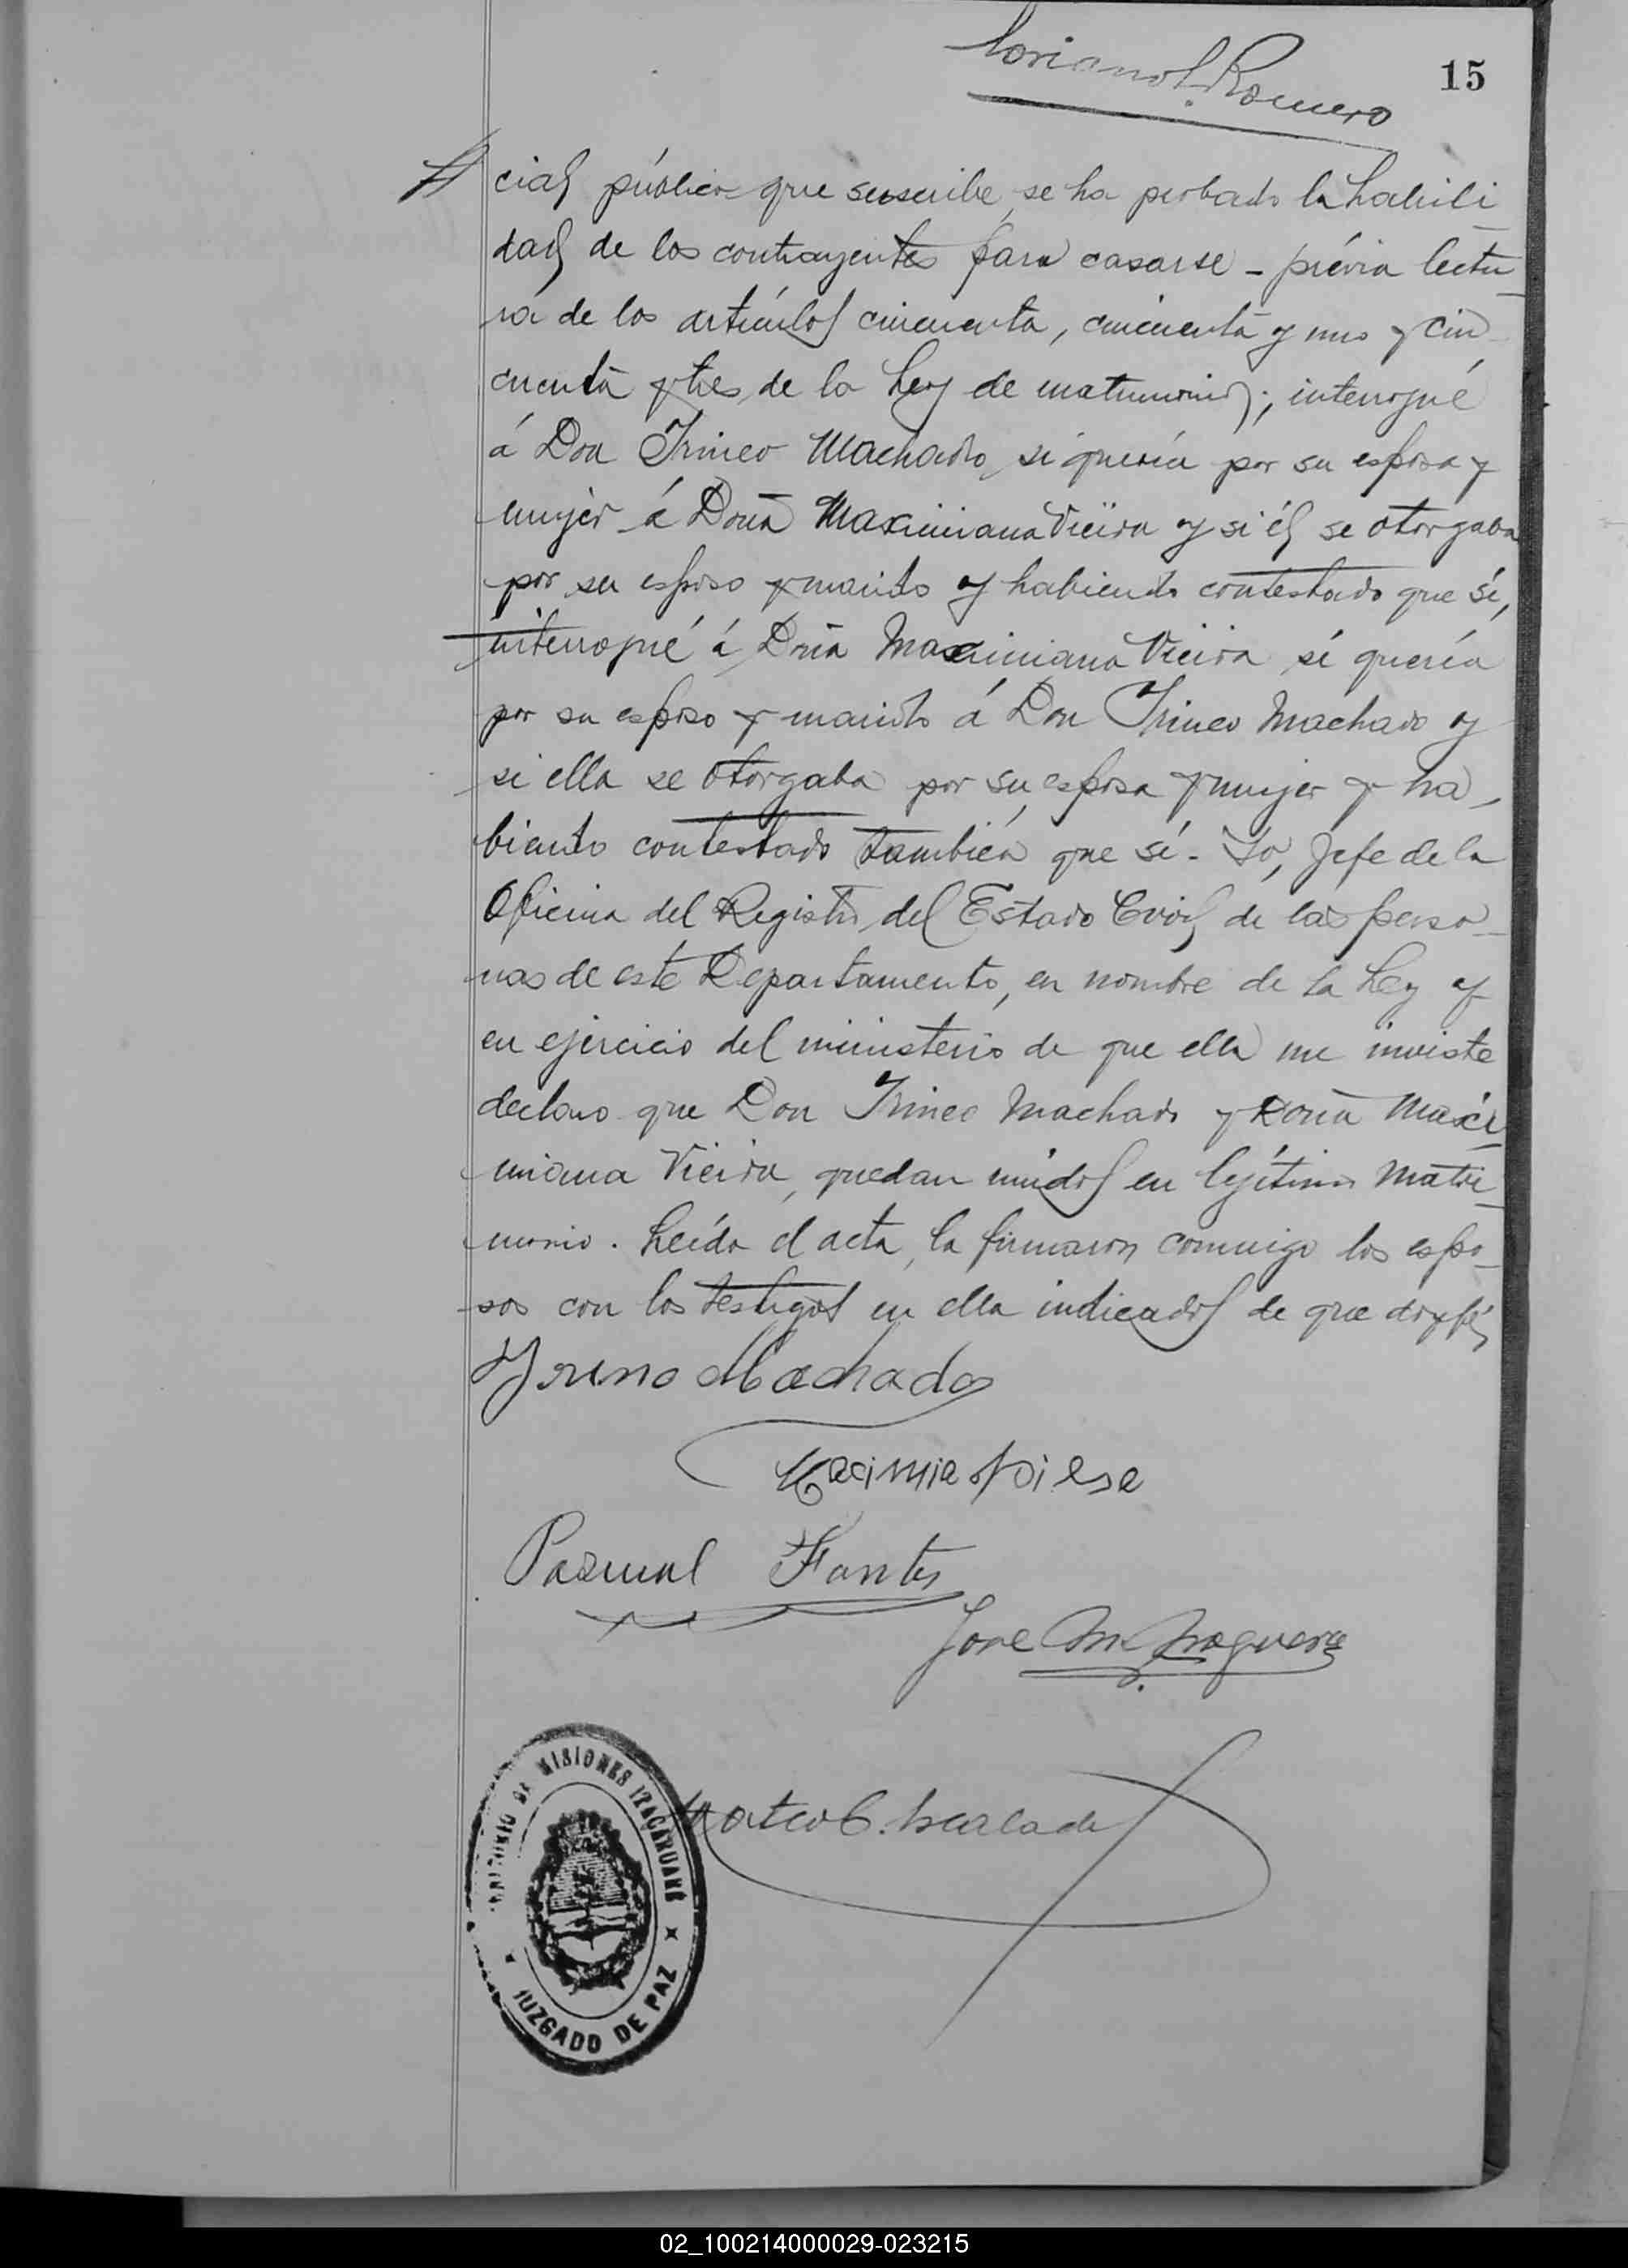 Romero
15
cial público que suscribe, se ha probado la habili
dad de los contrayentes para casarse - prévia lectu
ra de los artículos cincuenta, cincuenta y uno y cin
cuenta y tres de la Ley de matrimonio; interrogué
á Don Irineo Machado, si quería por su esposa y
mujer á Doña Maximiana Vieira y si él se otorgaba
por su esposo y marido y habiendo contestado que sí,
interrogué á Doña Maximiana Vieira si quería
por su esposo y marido á Don Irineo Machado y
si ella se otorgaba por su esposa y mujer y ha
biendo contestado también que sí - Yo, Jefe de la
Oficina del Registro del Estado Civil de las perso
nas de este Departamento, en nombre de la Ley y
en ejercicio del ministerio de que ella me inviste
declaro que Don Irineo Machado y Doña Maxi
miana Vieira, quedan unidos en legítimo matri
monio. Leída el acta, la firmaron conmigo los espo
sos con los testigos en ella indicados de que doy fé,
Machado
Pascual Fontes
Jose M. Noguera
Mateo C.
TERRITORIO DE MISIONES ITACARUARÉ
JUZGADO DE PAZ
02_100214000029-023215